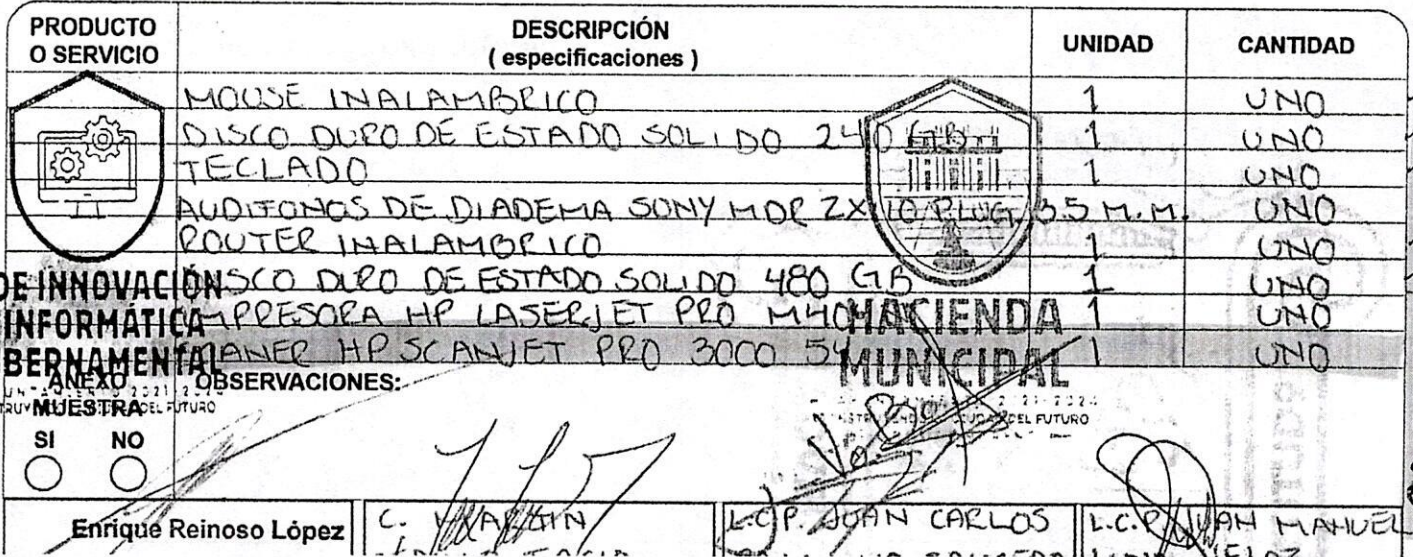 PRODUCTO O SERVICIO
DESCRIPCIÓN
( especificaciones )
UNIDAD
CANTIDAD
MOUSE INALAMBRICO 1 UNO
DISCO DURO DE ESTADO SOLIDO 240 GB 1 UNO
TECLADO 1 UNO
AUDIFONOS DE DIADEMA SONY MDR ZX110 PLUG 3.5 M.M. UNO
ROUTER INALAMBRICO 1 UNO
DISCO DURO DE ESTADO SOLIDO 480 GB 1 UNO
IMPRESORA HP LASERJET PRO 1 UNO
HP SCANJET PRO 3000 1 UNO
DE INNOVACIÓN
INFORMÁTICA
HACIENDA
MUNICIPAL
DEL FUTURO
ANEXO
MUESTRA
DEL FUTURO
SI NO
OBSERVACIONES:
Vo. Bo.
Enrique Reinoso López
C. MARTIN
L.C.P. JUAN CARLOS
L.C.P. JUAN MANUEL